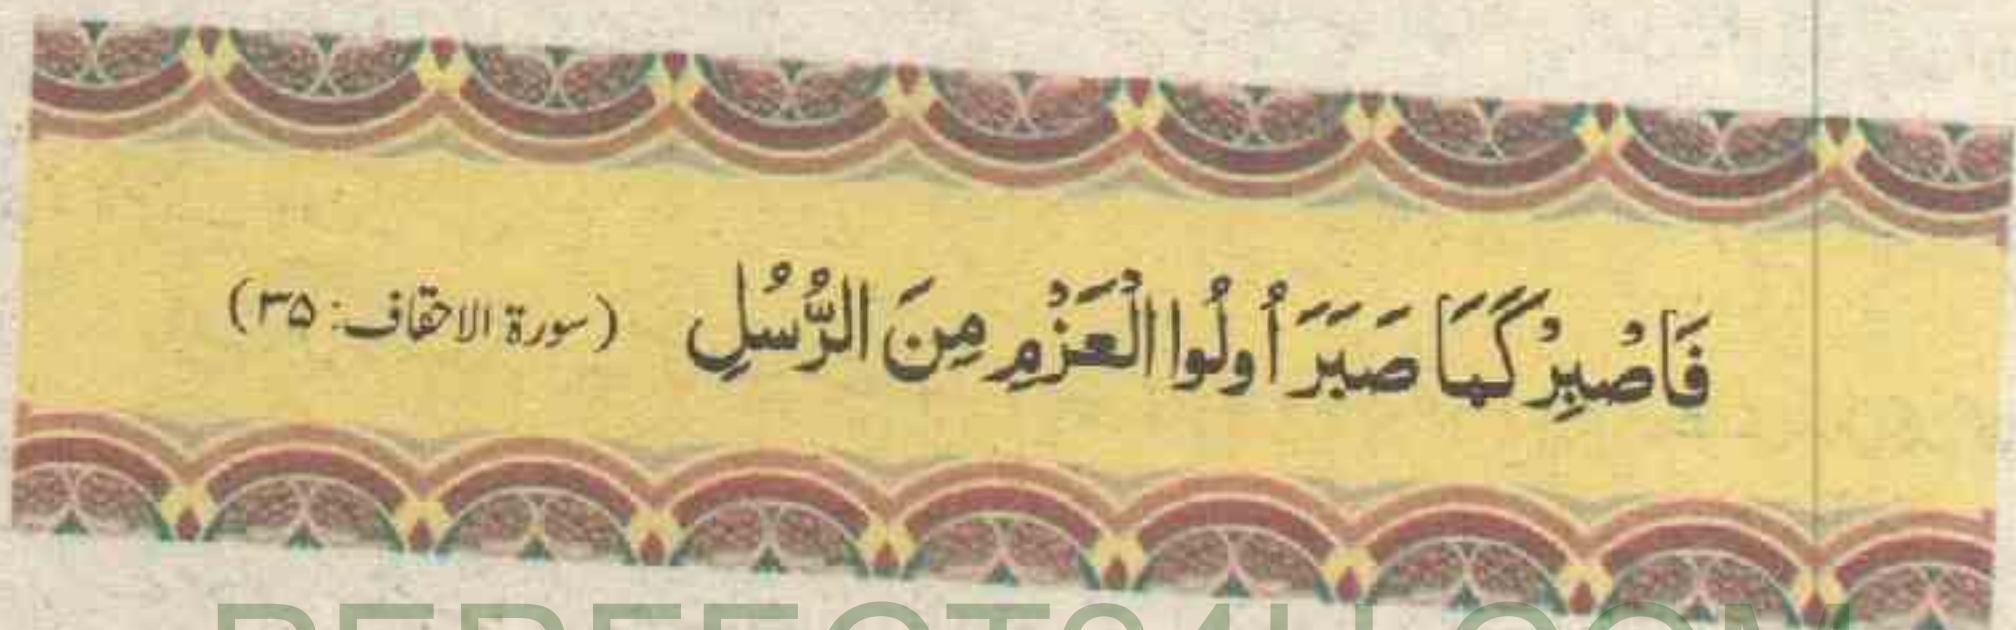 فَاصْبِرْ كَمَا صَبَرَ أُولُوا الْعَزْمِ مِنَ الرُّسُلِ (سورة الاحقاف: ۳۵)